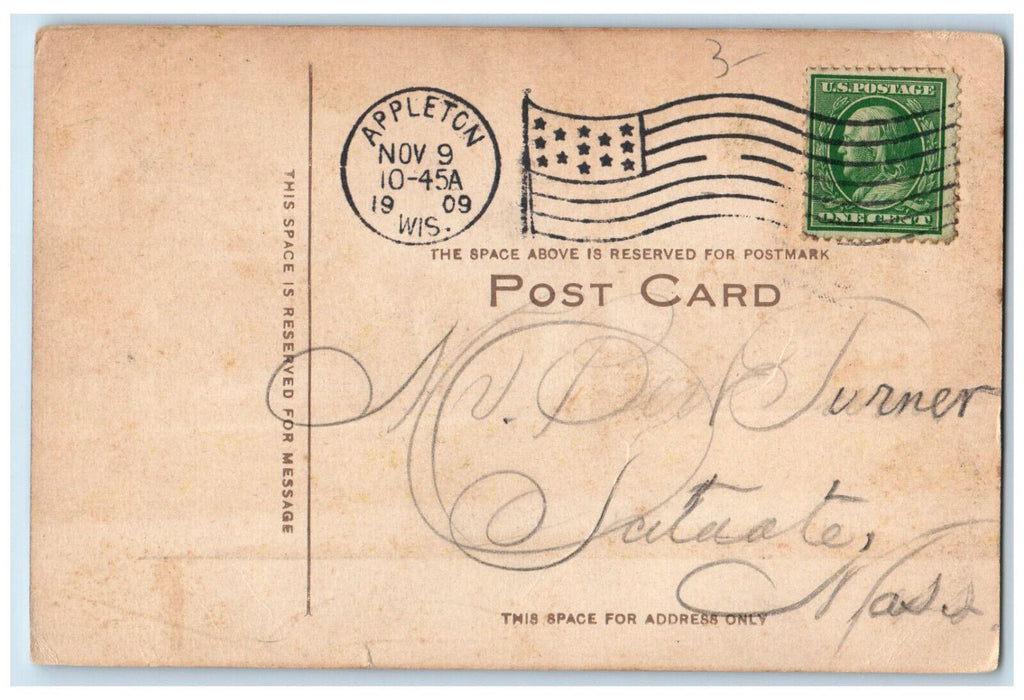 3-
U.S. POSTAGE
ONE CENT
APPLETON
NOV 9
10-45A
19 09
WIS.
THE SPACE ABOVE IS RESERVED FOR POSTMARK
POST CARD
THIS SPACE IS RESERVED FOR MESSAGE
Mr. Turner
Mass.
THIS SPACE FOR ADDRESS ONLY